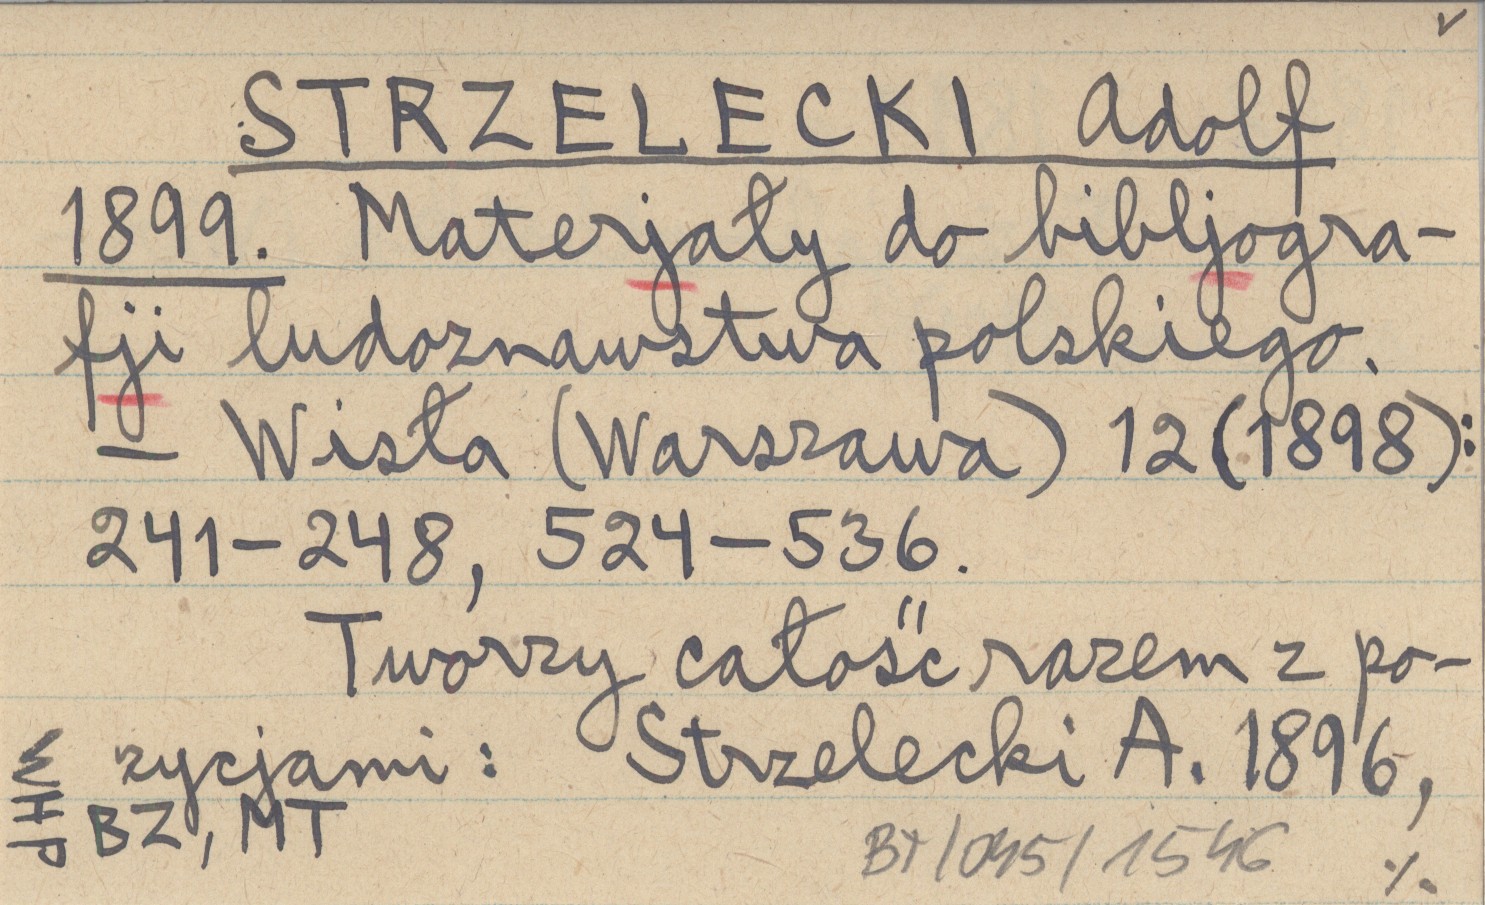 STRZELECKI Adolf
1899. Materjały do bibljogra-
fji ludoznawstwa polskiego.
— Wisła (Warszawa) 12 (1898):
241-248, 524-536.
Tworzy całość razem z po-
zycjami: Strzelecki A. 1896,
BZ, MT
./.